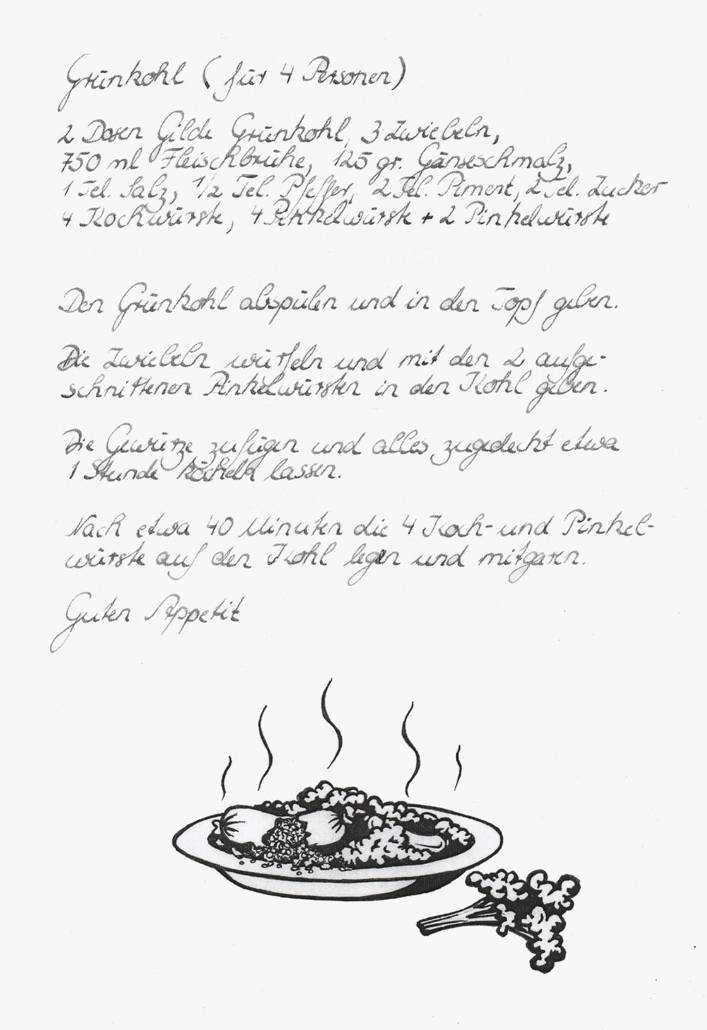 Grünkohl (für 4 Personen)
2 Dosen Gilde Grünkohl, 3 Zwiebeln,
750 ml Fleischbrühe, 125 gr. Gänseschmalz,
1 Tel. Salz, 1/2 Tel. Pfeffer, 2 Tel. Piment, 2 Tel. Zucker
4 Kochwürste, 4 Pinkelwürste + 2 Pinkelwürste
Den Grünkohl abspülen und in den Topf geben.
Die Zwiebeln würfeln und mit den 2 aufge-
schnittenen Pinkelwürsten in den Kohl geben.
Die Gewürze zufügen und alles zugedeckt etwa
1 Stunde köcheln lassen.
Nach etwa 40 Minuten die 4 Koch- und Pinkel-
würste auf den Kohl legen und mitgaren.
Guten Appetit